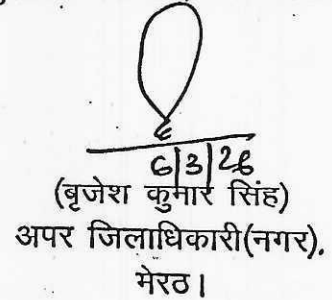 6|3|26
(बृजेश कुमार सिंह)
अपर जिलाधिकारी(नगर).
मेरठ।